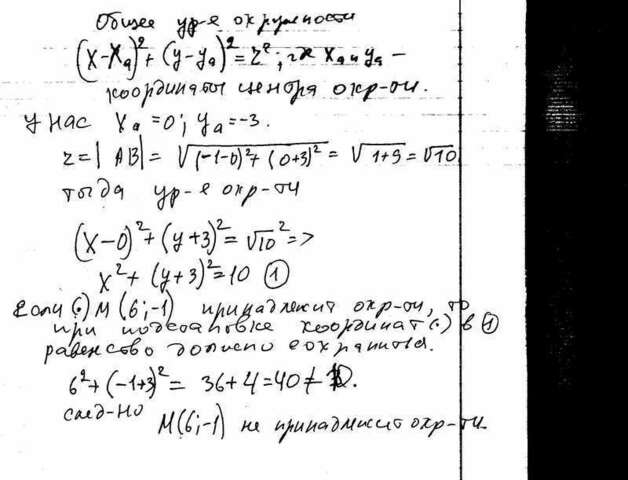 Общее ур-е окружности
(x-xₐ)²+(y-yₐ)²=r², где xₐ и yₐ –
координаты центра окр-ти.
У нас xₐ=0; yₐ=-3.
r=|AB|=√((-1-0)²+(0+3)²)=√(1+9)=√10
тогда ур-е окр-ти
(x-0)²+(y+3)²=√10² =>
x²+(y+3)²=10 ①
Если (·) M(6;-1) принадлежит окр-ти, то
при подстановке координат (·) в ①
равенство должно сохранится.
6²+(-1+3)²= 36+4=40≠10.
след-но
M(6;-1) не принадлежит окр-ти.